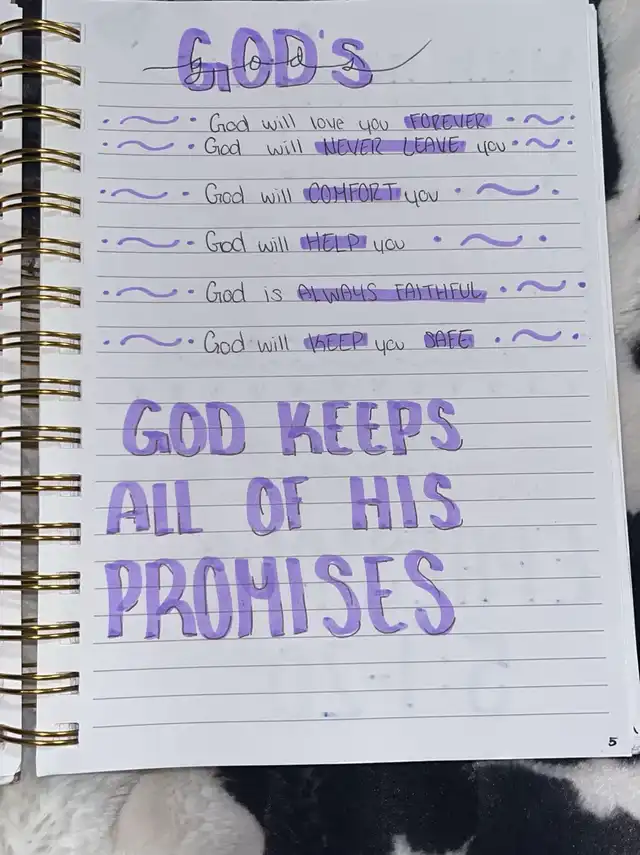 GOD'S
gods
God will love you FOREVER
God will NEVER LEAVE you
God will COMFORT you
God will HELP you
God is ALWAYS FAITHFUL
God will KEEP you SAFE
GOD KEEPS
ALL OF HIS
PROMISES
5